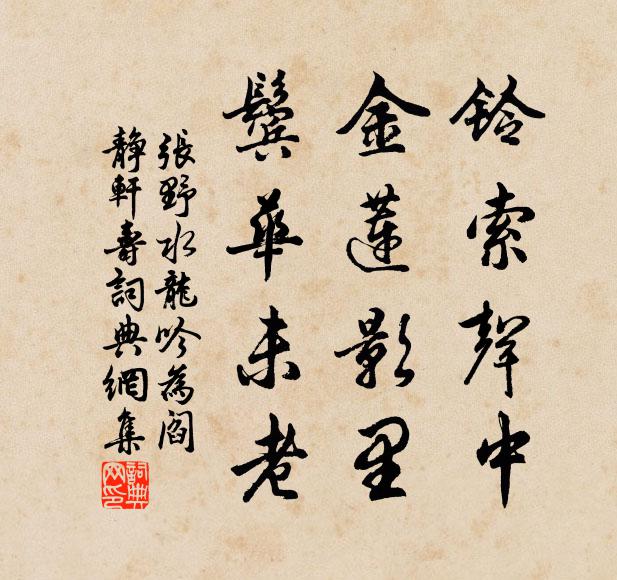 鈴索聲中
金蓮影里
鬓華未老
張野水龍吟為閻
靜軒壽詞典網集
詞典网印